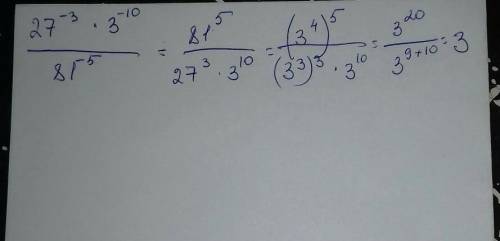 \frac{27^{-3} \cdot 3^{-10}}{81^{-5}} = \frac{81^5}{27^3 \cdot 3^{10}} = \frac{(3^4)^5}{(3^3)^3 \cdot 3^{10}} = \frac{3^{20}}{3^{9+10}} = 3